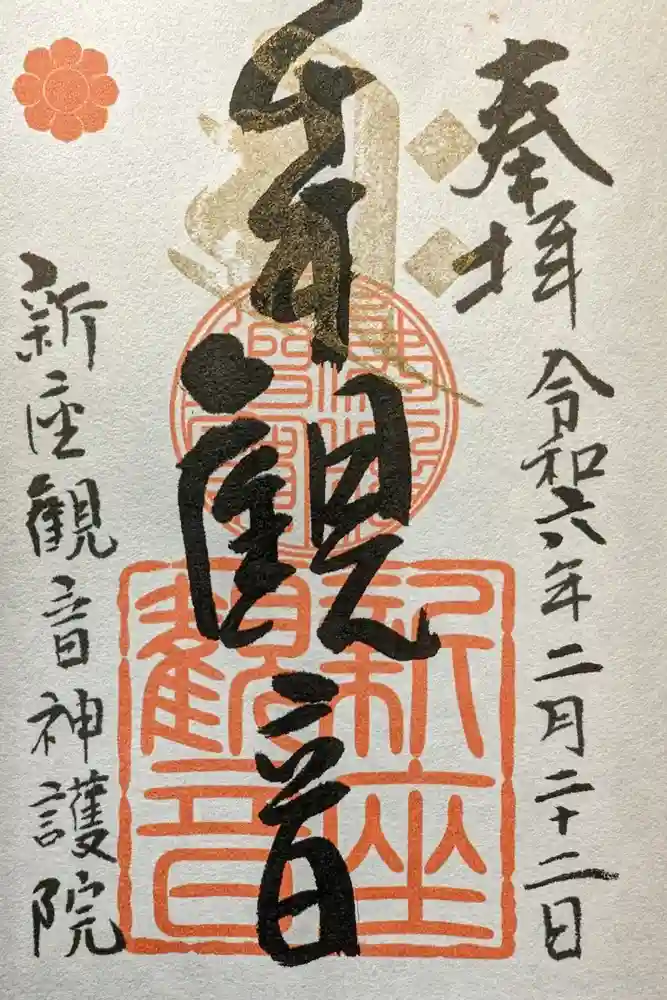 奉拝
令和六年二月二十二日
観音
新座観音
新座観音神護院